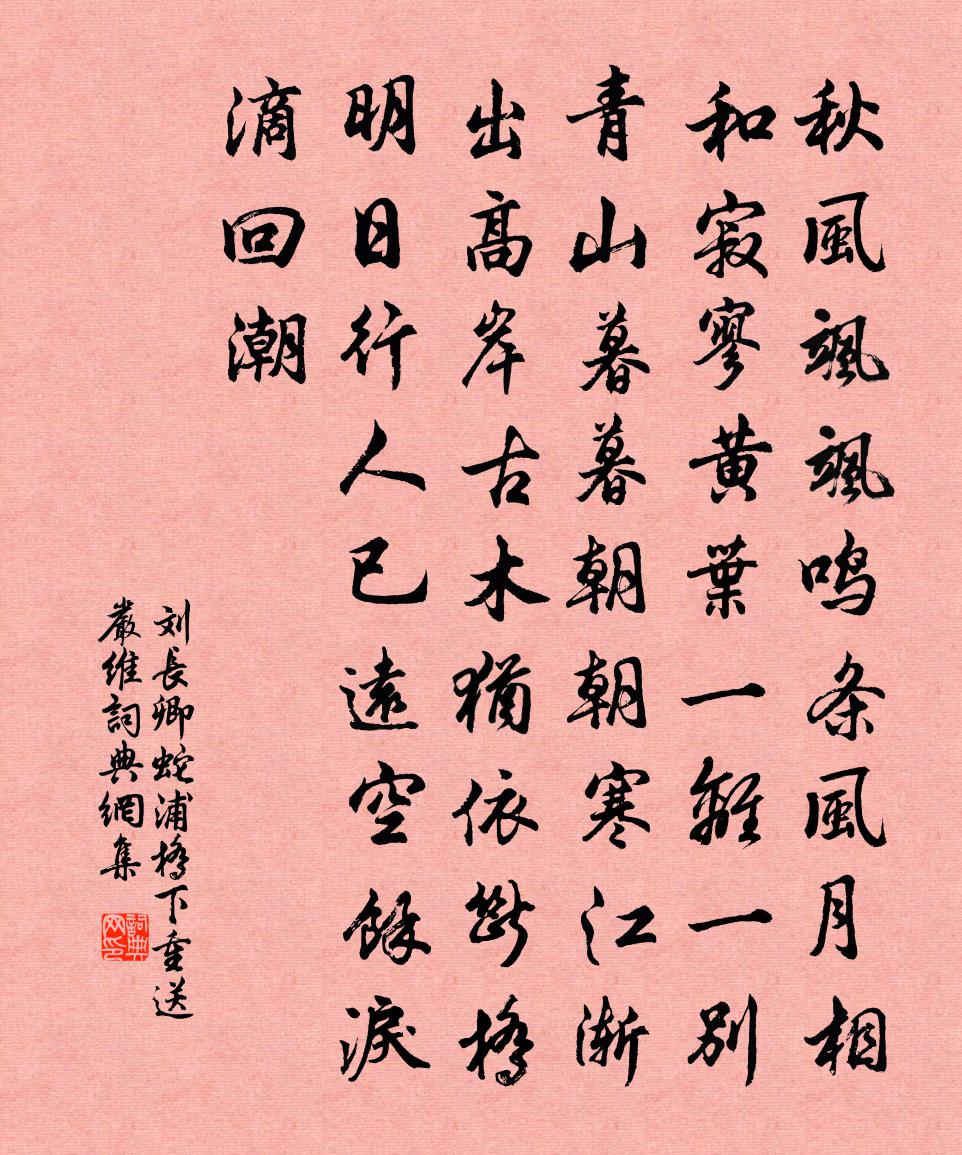 秋風颯颯鳴条風月相
和寂寥黄葉一離一別
青山暮暮朝朝寒江漸
出高岸古木猶依斷橋
明日行人已遠空餘淚
滴回潮
刘長卿蛇浦橋下重送
嚴維詞典網集
詞典网印